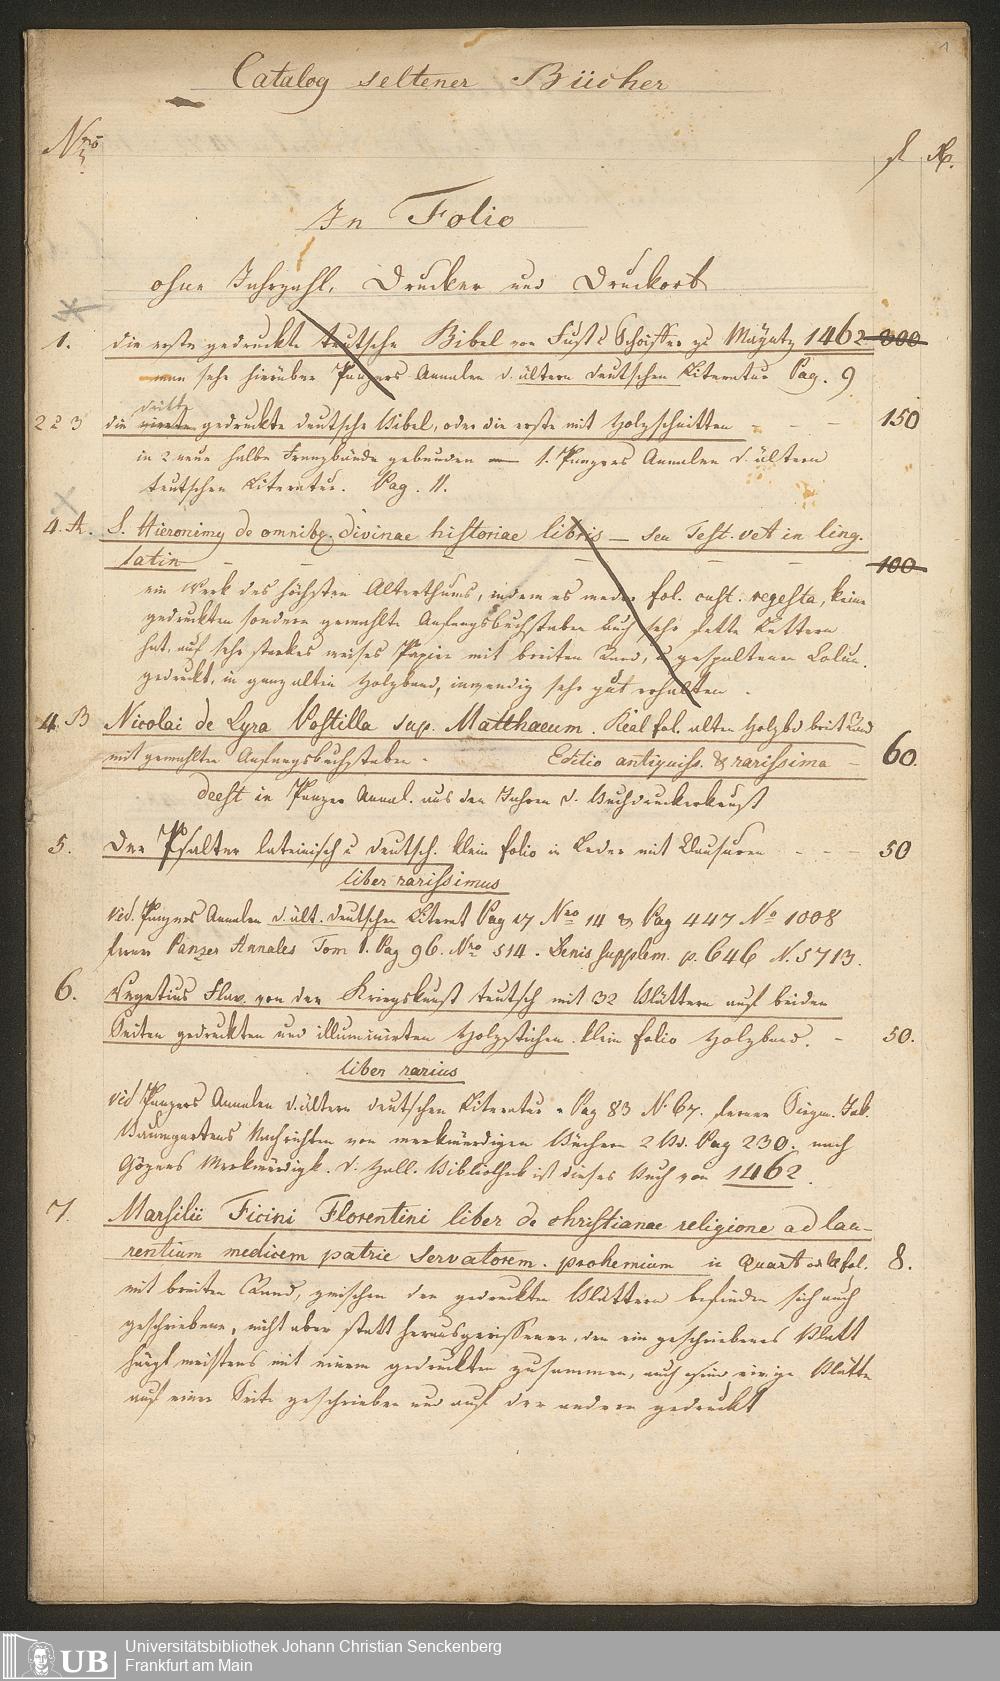 1
Catalog seltener Bücher
Nro
fl Xr.
In Folio
ohne Jahrzahl, Drucker und Druckort
1. die erste gedruckte teutsche Bibel von Fust & Schoiffer zu Maÿntz 1462 300
man sehe hierüber Panzers Annalen d. ältern deutschen Literatur Pag. 9
dritte
2 & 3 die vierte gedruckte deutsche Bibel, oder die erste mit Holzschnitten - - - 150
in 2 neue halbe Franzbände gebunden — s. Panzers Annalen d. ältern
teutschen Literatur. Pag. 11.
4. A. S. Hieronimy de omnibq. divinae historiae libris — seu Test. vet in ling.
latin - - - - - 100
ein Werk des höchsten Alterthums, indem es weder fol. cust. regesta, keine
gedruckten sondern gemahlte Anfangsbuchstaben auch sehr fette Lettern
hat, auf sehr starkes weises Papier mit breiten Rand, u gespaltenen Colum.
gedruckt, in ganz alten Holzband, inwendig sehr gut erhalten.
4. B Nicolai de Lyra Postilla sup. Matthaeum. Real fol. alten Holzbd breit Rand
mit gemahlten Anfangsbuchstaben. Editio antiquiss. & rarissima - 60.
deest in Panzer Annal. aus den Jahren d. Buchdruckerkunst
5. Der Psalter lateinisch u deutsch. klein folio in Leder mit Clausuren - - 50
liber rarissimus
vid. Panzers Annalen d. ält. deutschen Literat Pag 17 Nro 14 & Pag 447 No 1008
ferner Panzer Annales Tom 1. Pag 96. Nro 514. Denis Supplem. p. 646 N. 5713.
6. Vegetius Flav. von der Kriegskunst teutsch mit 32 Blättern auf beiden
Seiten gedruckten und illuminirten Holzstichen. klein folio Holzband. - 50.
liber rarius
vid Panzers Annalen d. ältern deutschen Literatur. Pag 83 N. 67. ferner Siegm. Jak.
Baumgartens Nachrichten von merkwürdigen Büchern 2 Bd. Pag 230. nach
Gözens Merkwürdigk. d. Hall. Bibliothek ist dieses Buch von 1462.
7. Marsilii Ficini Florentini liber de christianae religione ad lau-
rentium medicem patrie servatorem. prohemium in Quart od kl fol. 8.
mit breiten Rand, zwischen den gedruckten Blättern befinden sich auch
geschriebene, nicht aber statt herausgerissener, den ein geschriebenes Blatt
hängt meistens mit einem gedruckten zusammen, auch sind einige Blätter
auf einer Seite geschrieben und auf der andern gedruckt
UB
Universitätsbibliothek Johann Christian Senckenberg
Frankfurt am Main